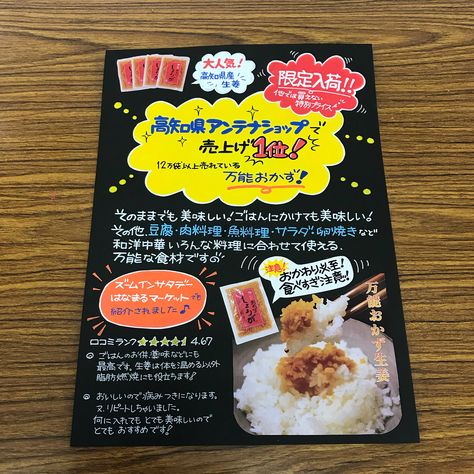 大人気!
高知県産
生姜
限定入荷!!
他では買えない
特別プライス
高知県アンテナショップで
売上げ1位!
12万袋以上売れている
万能おかず!
そのままでも美味しい!ごはんにかけても美味しい!
その他、豆腐・肉料理・魚料理・サラダ・卵焼きなど
和洋中華いろんな料理に合わせて使える、
万能な食材です
ズームインサタデー
はなまるマーケットでも
紹介されました♪
注意!
おかわり必至!
食べすぎ注意!!
万能おかず生姜
口コミランク★★★★★ 4.67
ごはんのお供、薬味などにも
最高です。生姜は体を温める以外
脂肪燃焼にも役立ちます!
おいしいので病みつきになります。
又、リピートしちゃいました。
何に入れてもとても美味しいので
とてもおすすめです!